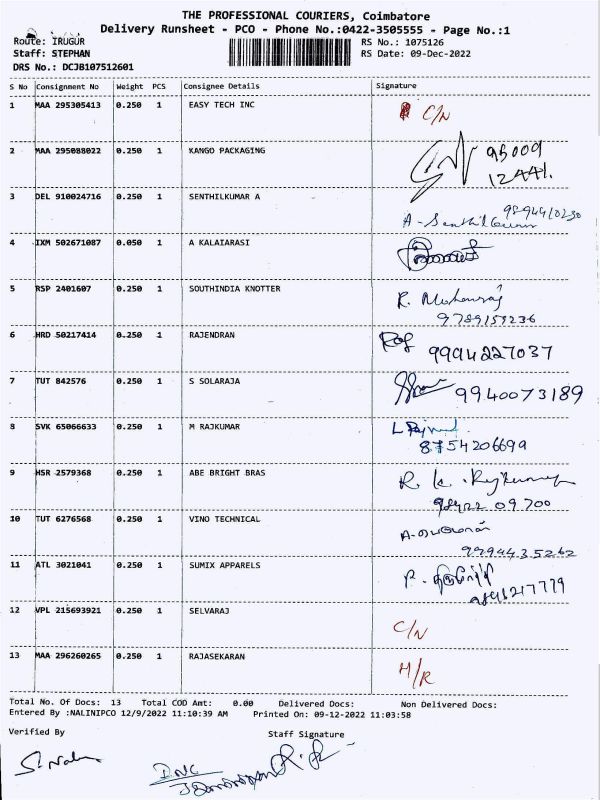 THE PROFESSIONAL COURIERS, Coimbatore
Delivery Runsheet - PCO - Phone No.:0422-3505555 - Page No.:1
Route: IRUGUR RS No.: 1075126
Staff: STEPHAN RS Date: 09-Dec-2022
DRS No.: DCJB107512601
S No Consignment No Weight PCS Consignee Details Signature
1 MAA 295305413 0.250 1 EASY TECH INC C/N
2 MAA 295088022 0.250 1 KANGO PACKAGING 95009
12441.
3 DEL 910024716 0.250 1 SENTHILKUMAR A
A - Senthil Kumar
4 IXM 502671087 0.050 1 A KALAIARASI
5 RSP 2401607 0.250 1 SOUTHINDIA KNOTTER R. Mohanraj
9789159236
6 HRD 50217414 0.250 1 RAJENDRAN
9994227037
7 TUT 842576 0.250 1 S SOLARAJA 9940073189
8 SVK 65066633 0.250 1 M RAJKUMAR
8754206699
9 HSR 2579368 0.250 1 ABE BRIGHT BRAS
98422 09700
10 TUT 6276568 0.250 1 VINO TECHNICAL
9994435262
11 ATL 3021041 0.250 1 SUMIX APPARELS
12 VPL 215693921 0.250 1 SELVARAJ C/N
13 MAA 296260265 0.250 1 RAJASEKARAN M/R
Total No. Of Docs: 13 Total COD Amt: 0.00 Delivered Docs: Non Delivered Docs:
Entered By :NALINIPCO 12/9/2022 11:10:39 AM Printed On: 09-12-2022 11:03:58
Verified By Staff Signature